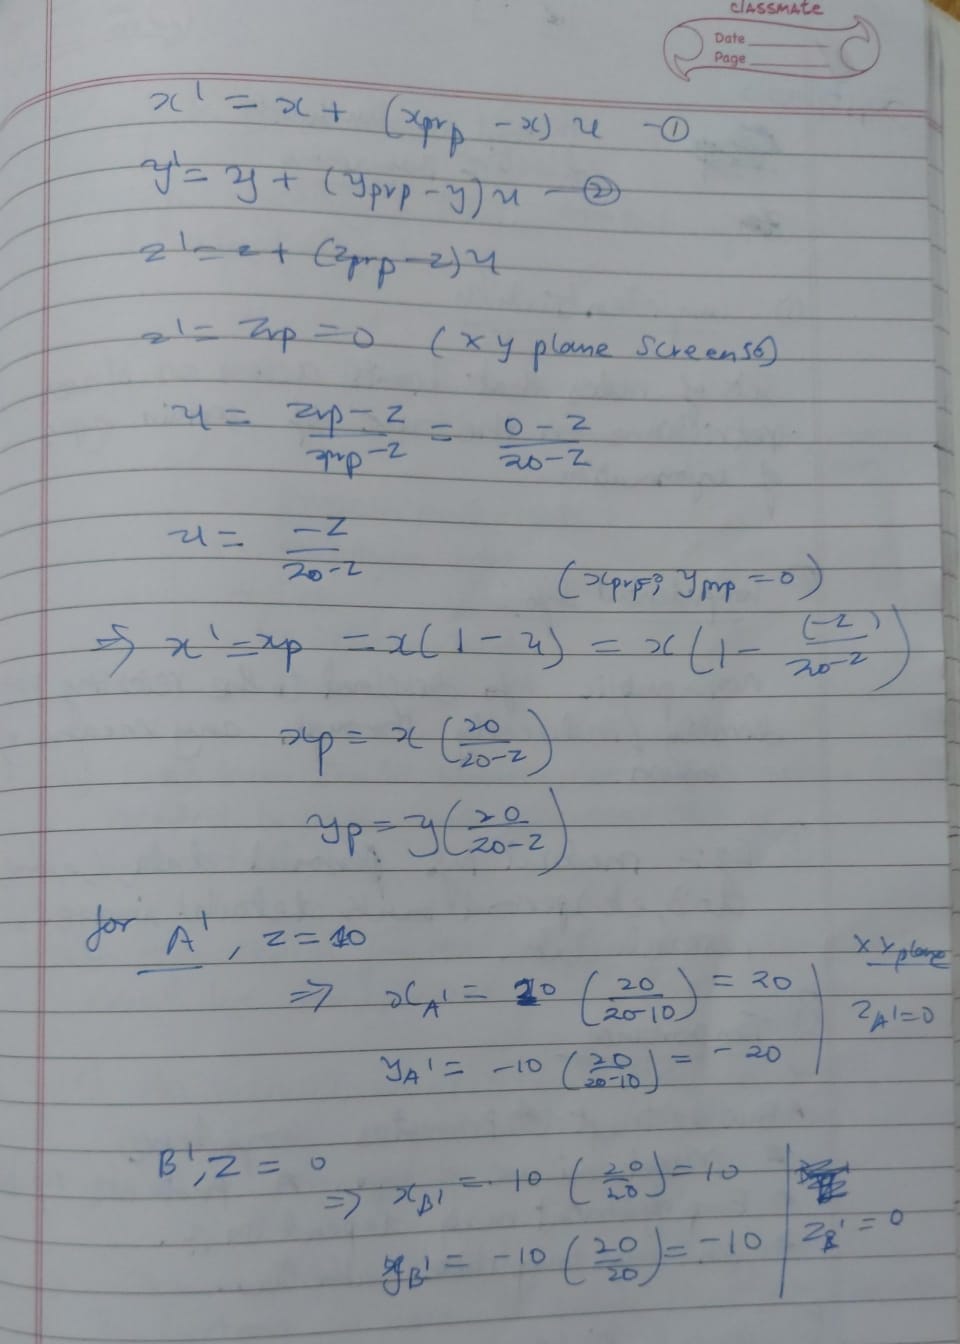 classmate
Date
Page
x' = x + (xprp - x) u - ①
y' = y + (yprp - y) u - ②
z' = z + (zprp - z) u
z' = zvp = 0 (x y plane screen
u = zvp - z / zprp - z = 0 - z / 20 - z
u = -z / 20 - z
(xprp, yprp = 0)
⇒ x' = xp = x(1 - u) = x(1 - (-z) / 20 - z)
xp = x (20 / 20 - z)
yp = y (20 / 20 - z)
for A', z = 10
xy plane
⇒ xA' = 10 (20 / 20-10) = 20
zA' = 0
yA' = -10 (20 / 20-10) = -20
B', z = 0
⇒ xB' = 10 (20 / 20) = 10
yB' = -10 (20 / 20) = -10
zB' = 0